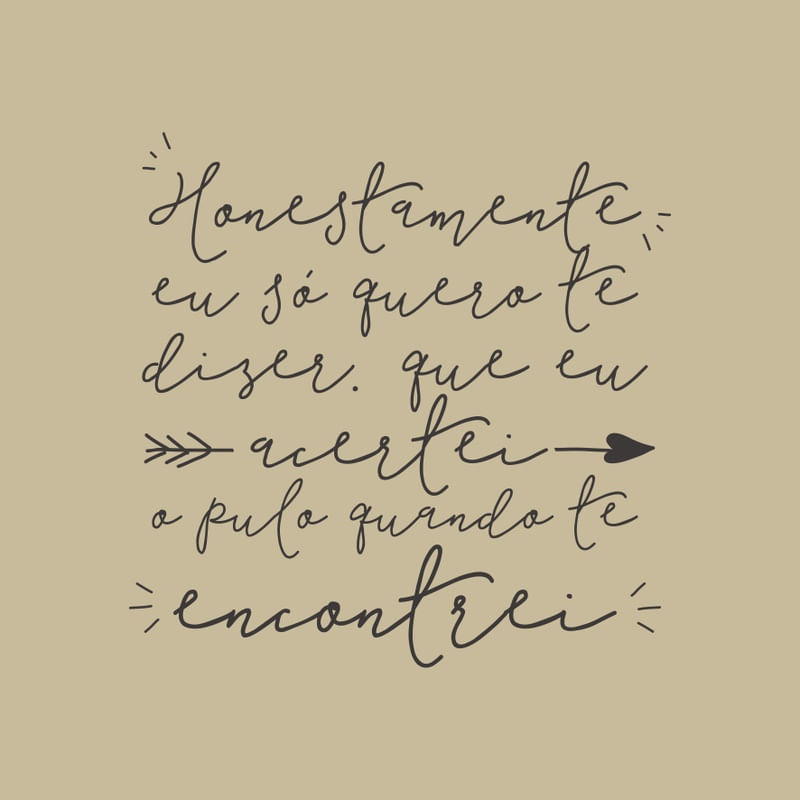 Honestamente
eu só quero te
dizer. que eu
acertei
o pulo quando te
encontrei